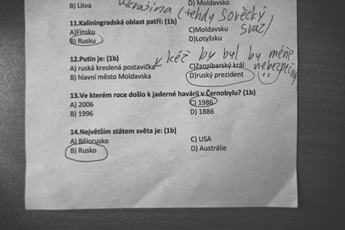 B) Litva
D) Moldavsko
Ukrajina (tehdy Sovětský svaz)
11.Kaliningradská oblast patří: (1b)
A)Finsku
C)Moldavsku
B) Rusku
D)Lotyšsku
kéž by byl by méně nebezpečný
12.Putin je: (1b)
A) ruská kreslená postavička
C)Zanzibarský král
B) hlavní město Moldavska
D)ruský prezident
13.Ve kterém roce došlo k jaderné havárii v Černobylu? (1b)
A) 2006
C) 1986
B) 1996
D) 1886
14.Největším státem světa je: (1b)
A) Bělorusko
C) USA
B) Rusko
D) Austrálie